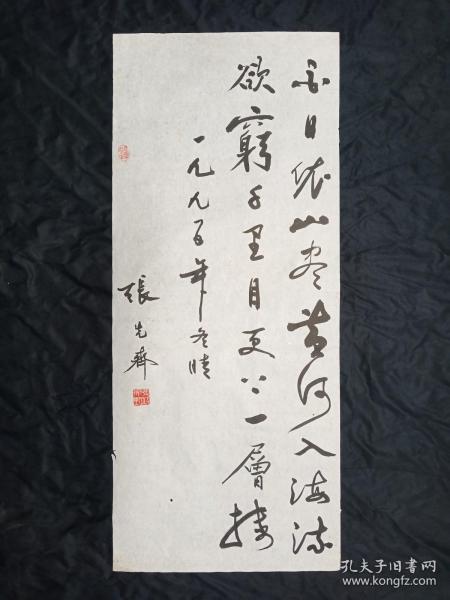 白日依山尽黄河入海流
欲窮千里目更上一層楼
一九九五年冬
張先齊
孔夫子旧书网
www.kongfz.com